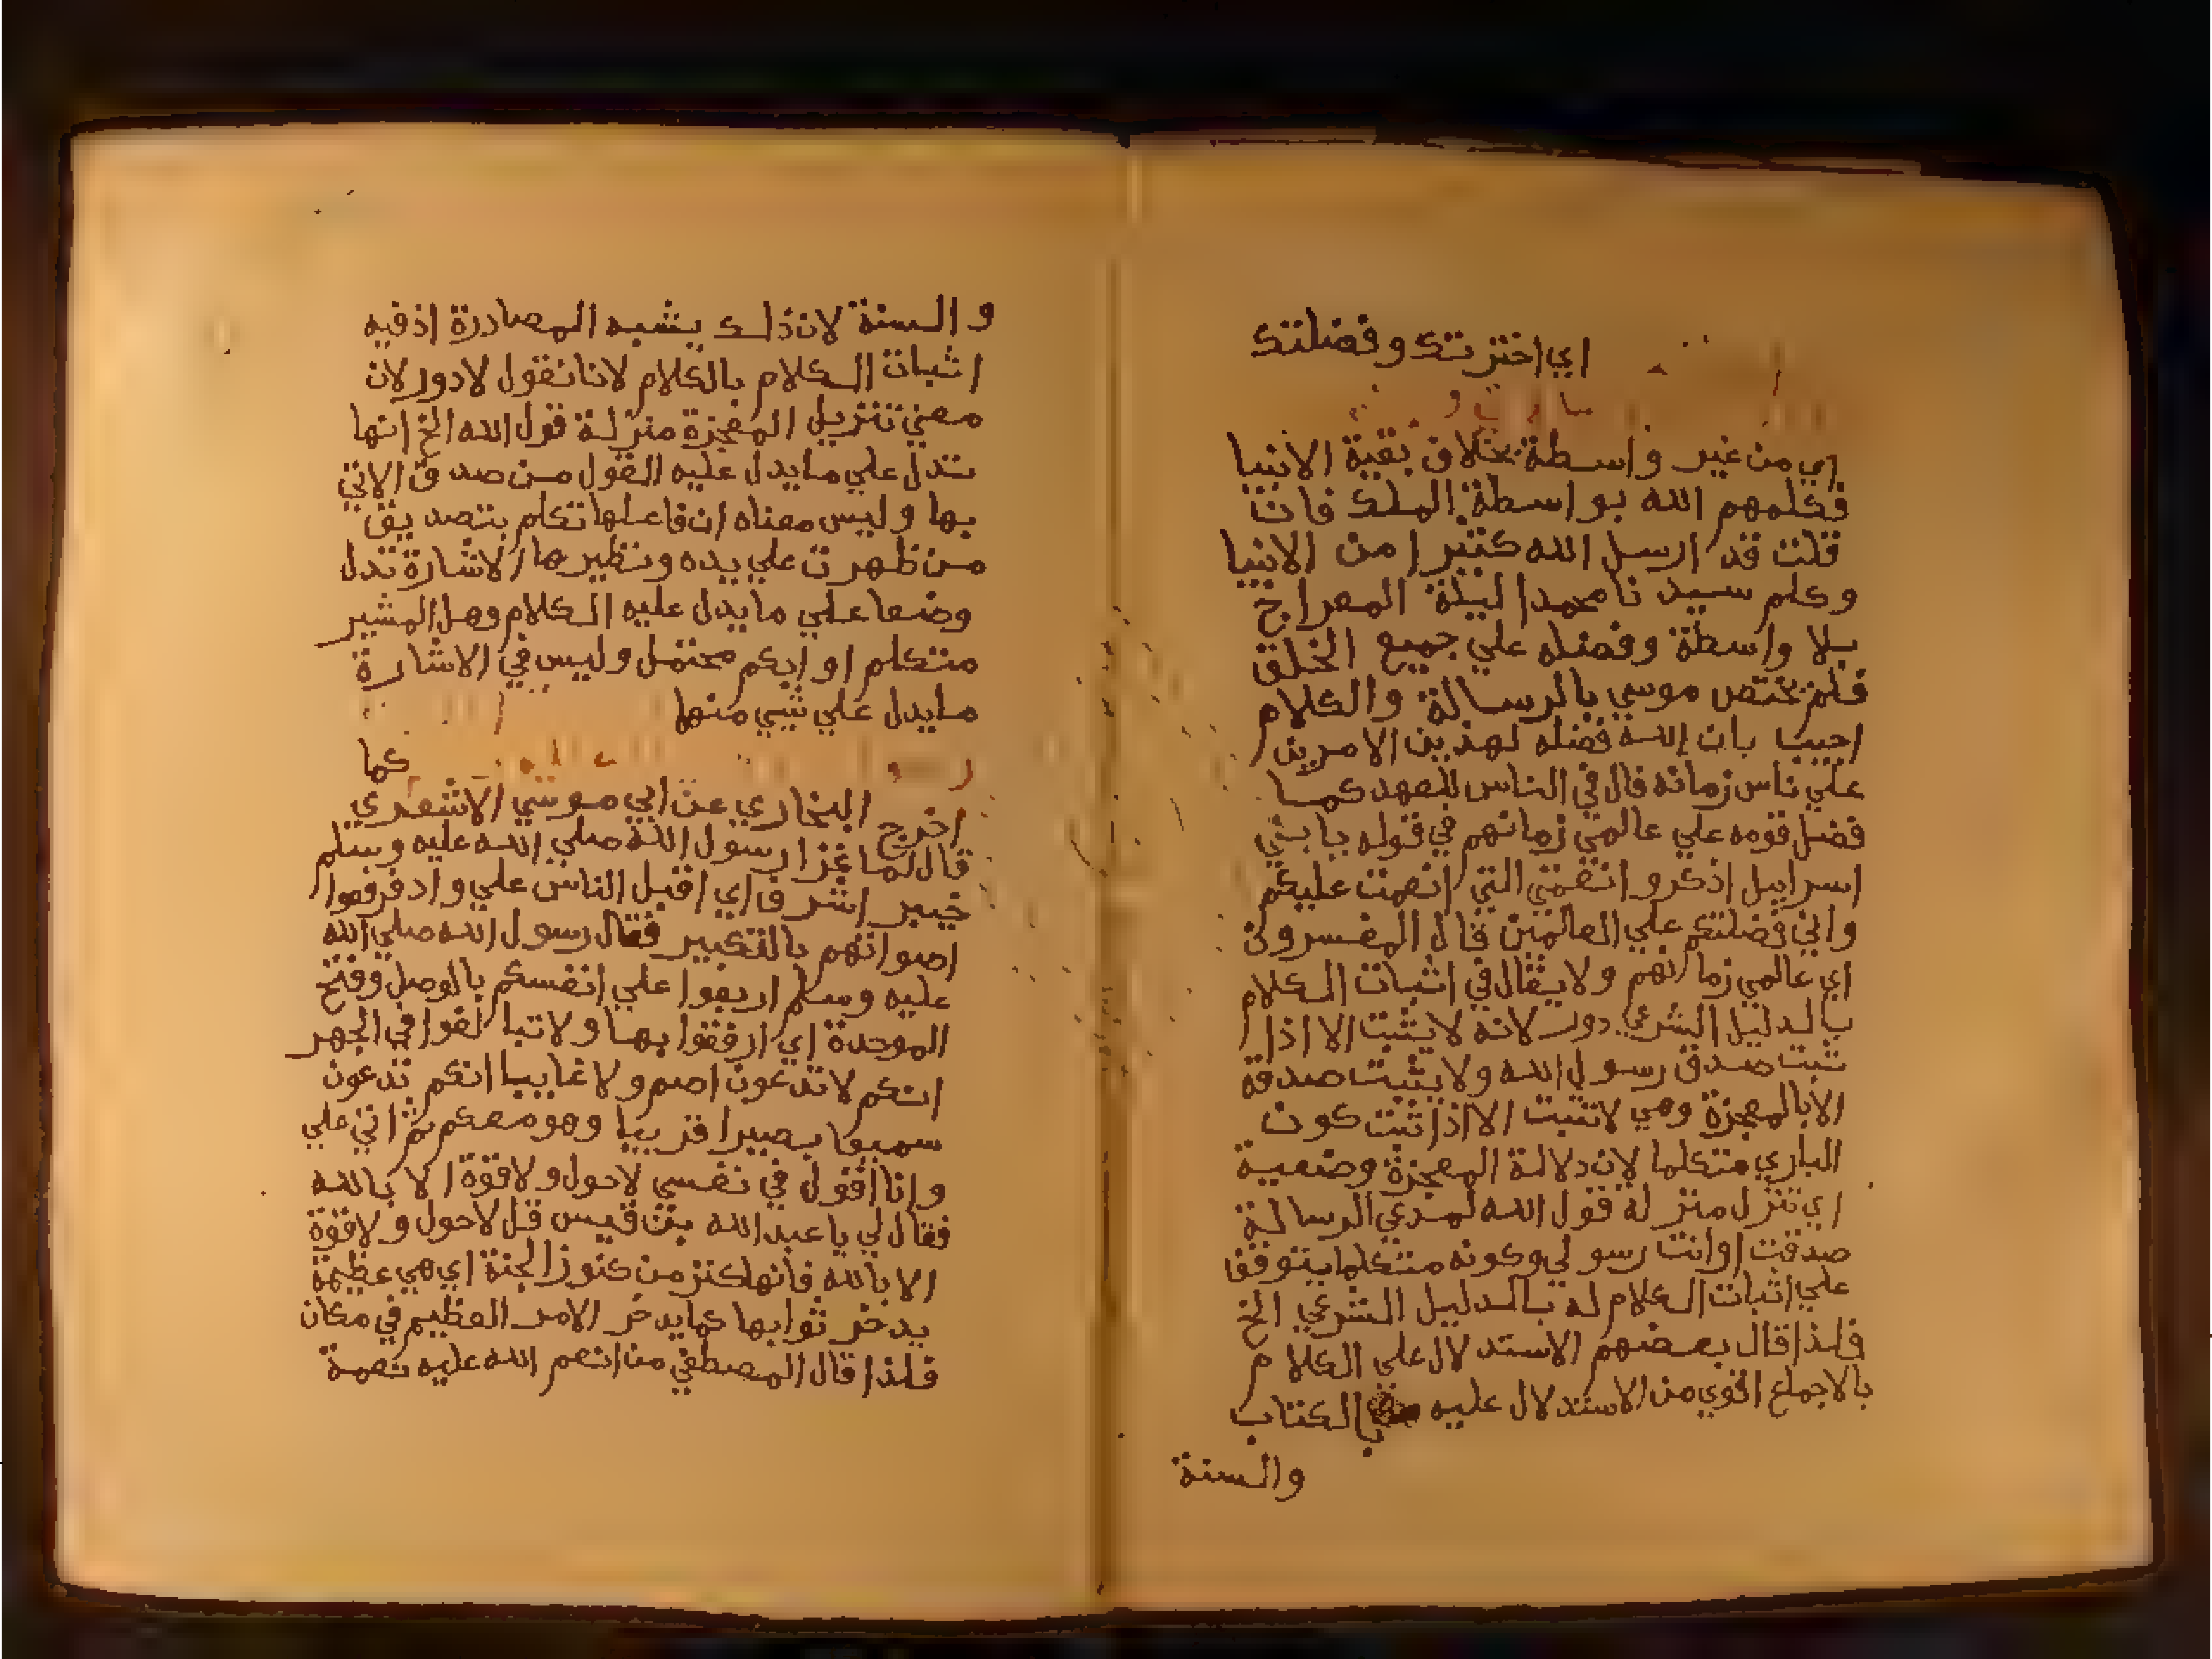 اي اخترتك وفضلتك
اي من غير واسطة بخلاف بقية الانبيا
فكلمهم الله بواسطة الملك فان
قلت قد ارسل الله كثيرا من الانبيا
وكلم سيدنا محمدا ليلة المعراج
بلا واسطة وفضله علي جميع الخلق
فلم يختص موسي بالرسالة والكلام
اجيب بان الله فضله لهذين الامرين
علي ناس زمانه قال في الناس للعهد كما
فضل قومه علي عالمي زمانهم في قوله يا بني
اسراييل اذكروا نعمتي التي انعمت عليكم
واني فضلتكم علي العالمين قال المفسرون
اي عالمي زمانهم ولا يقال في اثبات الكلام
بالدليل الشرعي دور لانه لا يثبت الا اذا
ثبت صدق رسول الله ولا يثبت صدقه
الا بالمعجزة وهي لا تثبت الا اذا ثبت كون
الباري متكلما لان دلالة المعجزة وضعية
اي تنزل منزلة قول الله لمدعي الرسالة
صدقت او انت رسولي وكونه متكلما يتوقف
علي اثبات الكلام له بالدليل الشرعي الخ
فلذا قال بعضهم الاستدلال علي الكلام
بالاجماع اقوي من الاستدلال عليه بالكتاب
والسنة
والسنة لان ذلك يشبه المصادرة اذ فيه
اثبات الكلام بالكلام لانا نقول لا دور لان
معني تنزيل المعجزة منزلة قول الله الخ انها
تدل علي ما يدل عليه القول من صدق الاتي
بها وليس معناه ان فاعلها تكلم بتصديق
من ظهرت علي يده ونظيرها الاشارة تدل
وضعا علي ما يدل عليه الكلام وهل المشير
متكلم او ابكم محتمل وليس في الاشارة
ما يدل علي شيي منها
كما
اخرج البخاري عن ابي موسي الاشعري
قال لما غزا رسول الله صلي الله عليه وسلم
خيبر اشرف اي اقبل الناس علي واد فرفعوا
اصواتهم بالتكبير فقال رسول الله صلي الله
عليه وسلم اربعوا علي انفسكم بالوصل وفتح
الموحدة اي ارفقوا بها ولا تبالغوا في الجهر
انكم لا تدعون اصم ولا غايبا انكم تدعون
سميعا بصيرا قريبا وهو معكم ثم اتي علي
وانا اقول في نفسي لا حول ولا قوة الا بالله
فقال لي يا عبد الله بن قيس قل لا حول ولا قوة
الا بالله فانها كنز من كنوز الجنة اي هي عظيمة
يدخر ثوابها كما يدخر الامر العظيم في مكان
فلذا قال المصطفي من انعم الله عليه نعمة